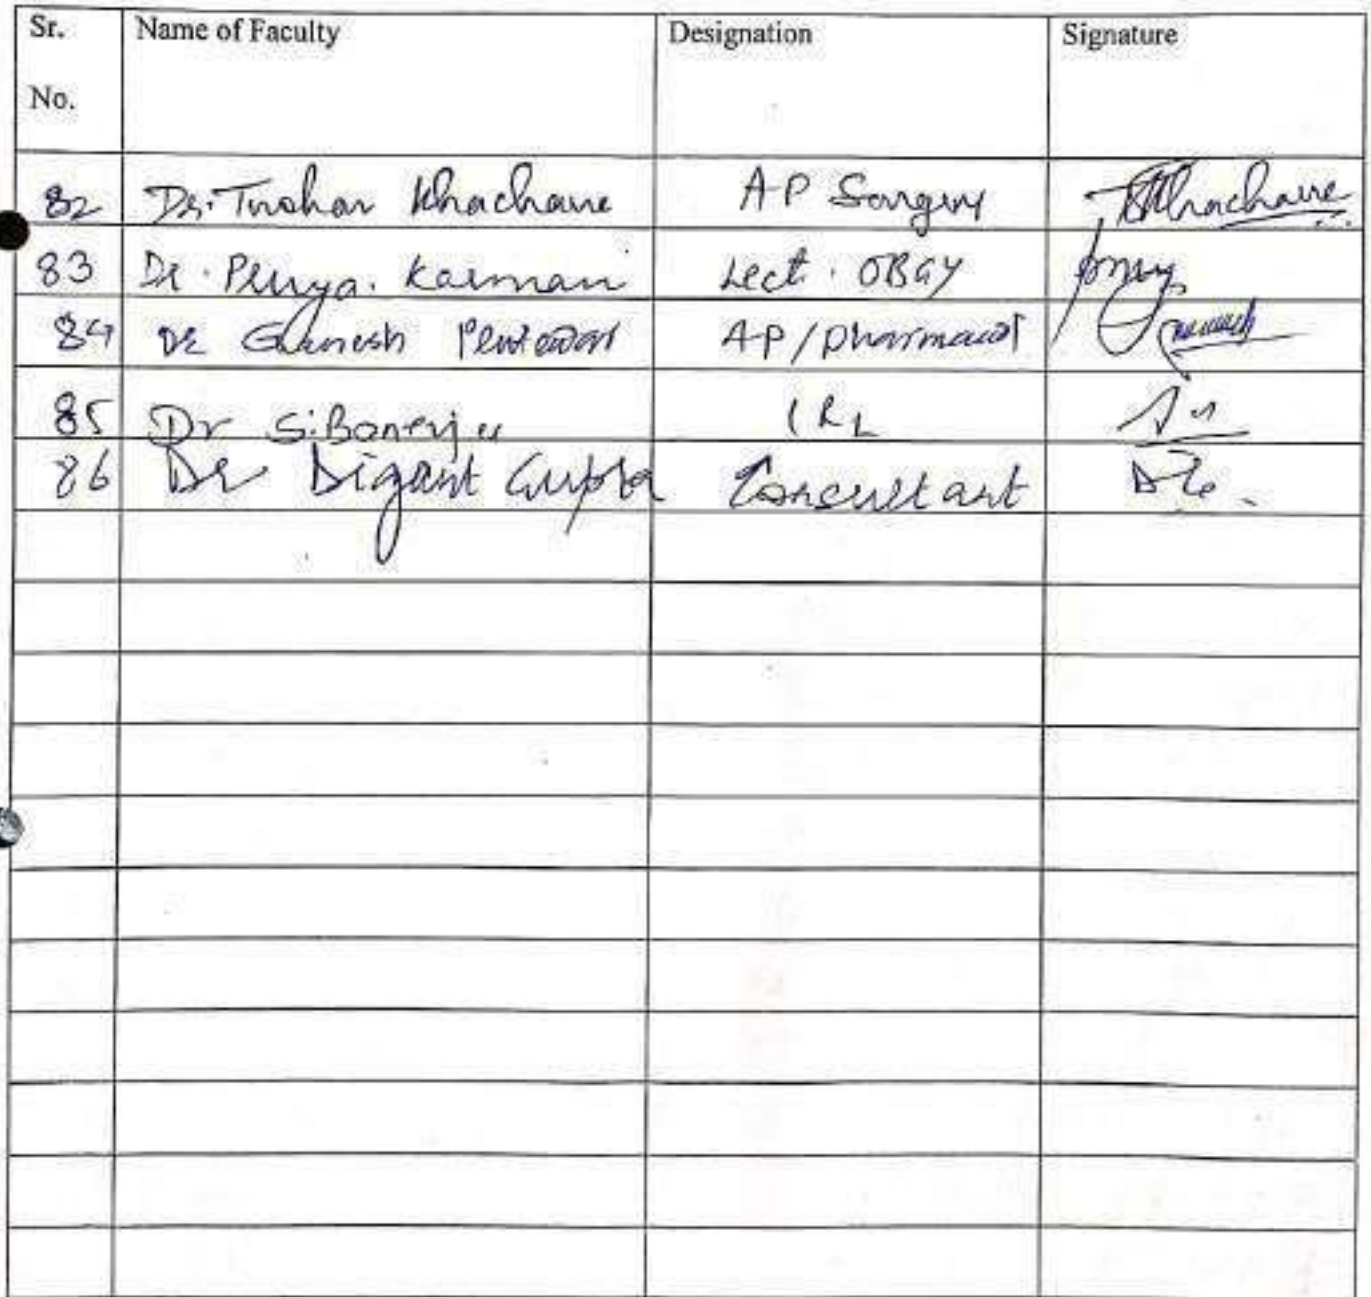 Sr. No. Name of Faculty Designation Signature
82 Dr. Tushar Khachane A-P Surgery TKhachane
83 Dr. Priya. Karmani Lect. OBGY
84 Dr Ganesh A-P/Pharmacol
85 Dr S. Banerjee
86 Dr Digant Gupta Consultant